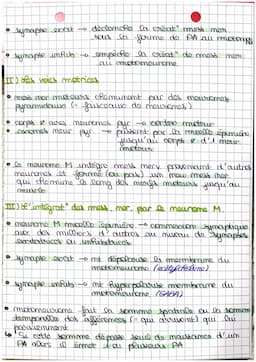 • synapse excit → déclenche la créat° mess ner
sous la forme de PA au motoneurone
• synapse inhib → empêche la créat° de mess ner
au motoneurone
II) les voies motrices
• mess ner moteurs cheminent par des neurones
pyramidaux (= faisceaux de neurones)
• corps ¢ aves neurones pyr → cortex moteur
• axones neur pyr. → passent par la moelle épinière
jusqu'au corps ¢ d'1 neur
moteur
• le neurone M intègre mess nerv provenant d'autres
neurones et forme (ou pas) un new mess ner
qui chemine le long des
muscle
III) l'intégrat° des mess. ner. par le neurone M.
• neurone M moelle épinière → connexion synaptique
avec des milliers d'autres au niveau de synapses
excitatrices ou inhibitrices
• synapse excit → nt dépolarise la membrane du
motoneurone (acétylcholine)
• synapse inhib → nt hyperpolarise membrane du
motoneurone (GABA)
• motoneurone fait la somme spatiale ou la somme
temporelle des afférences (= qui arrivent) qui lui
parviennent
↳ Si cette somme dépasse seuil de d'un
PA alors il émet 1 ou plusieurs PA